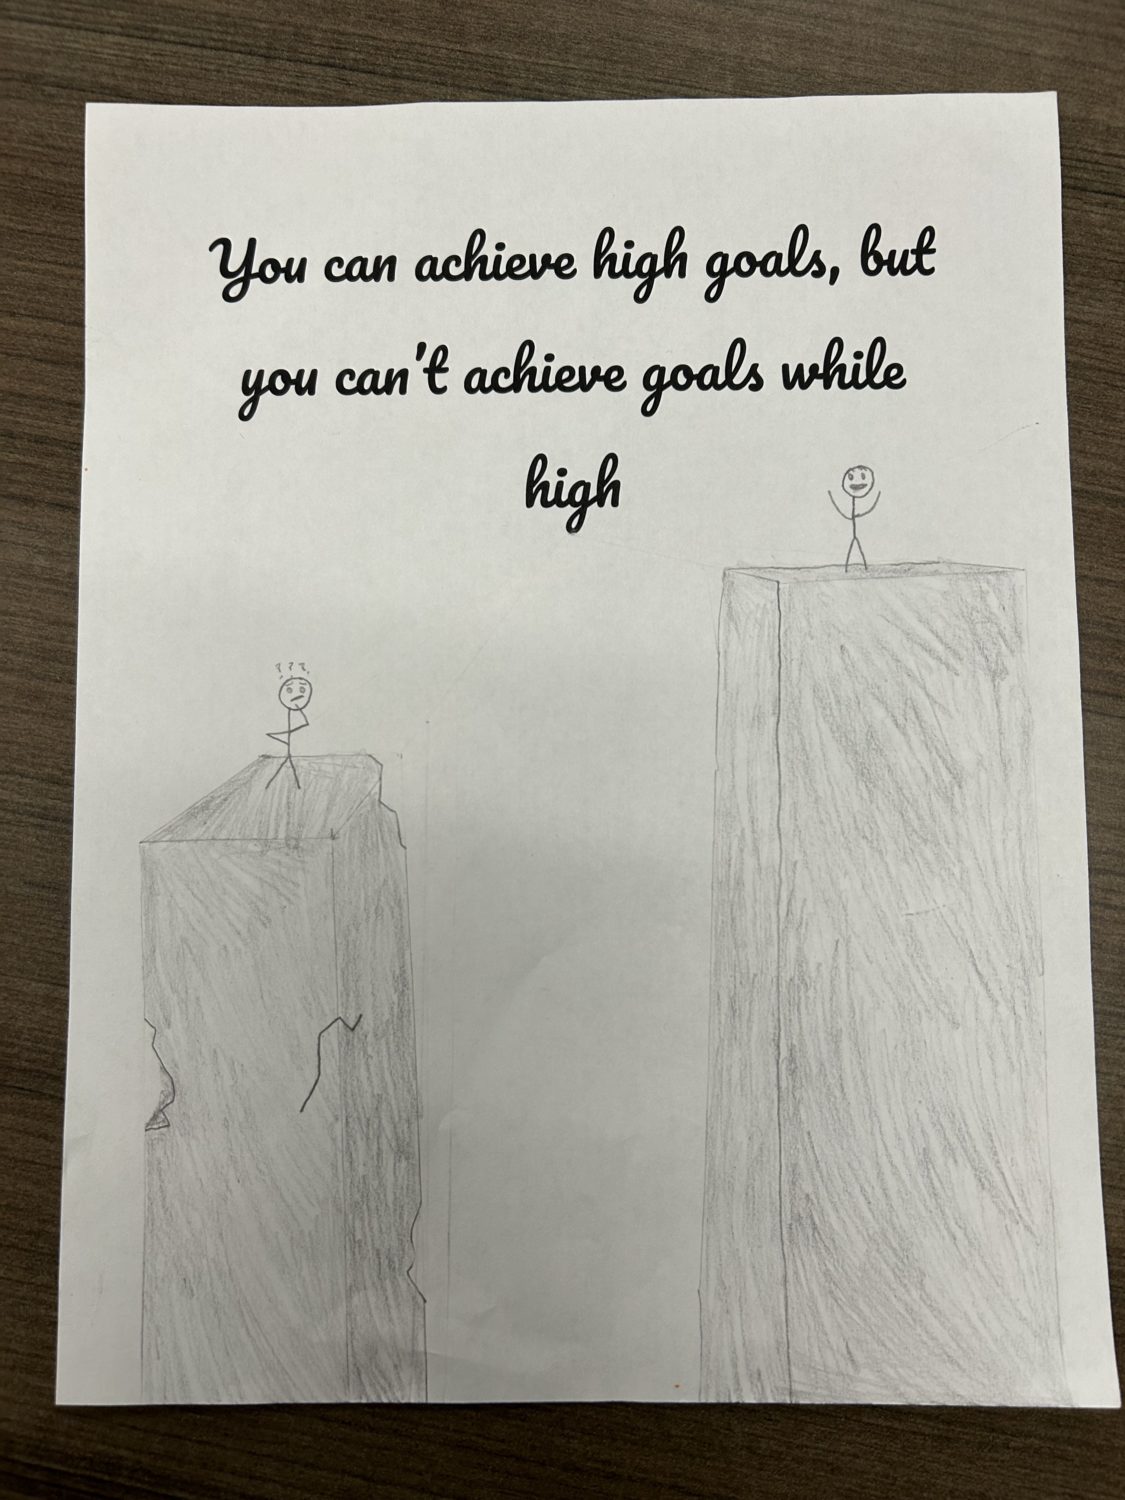 You can achieve high goals, but
you can't achieve goals while
high
???